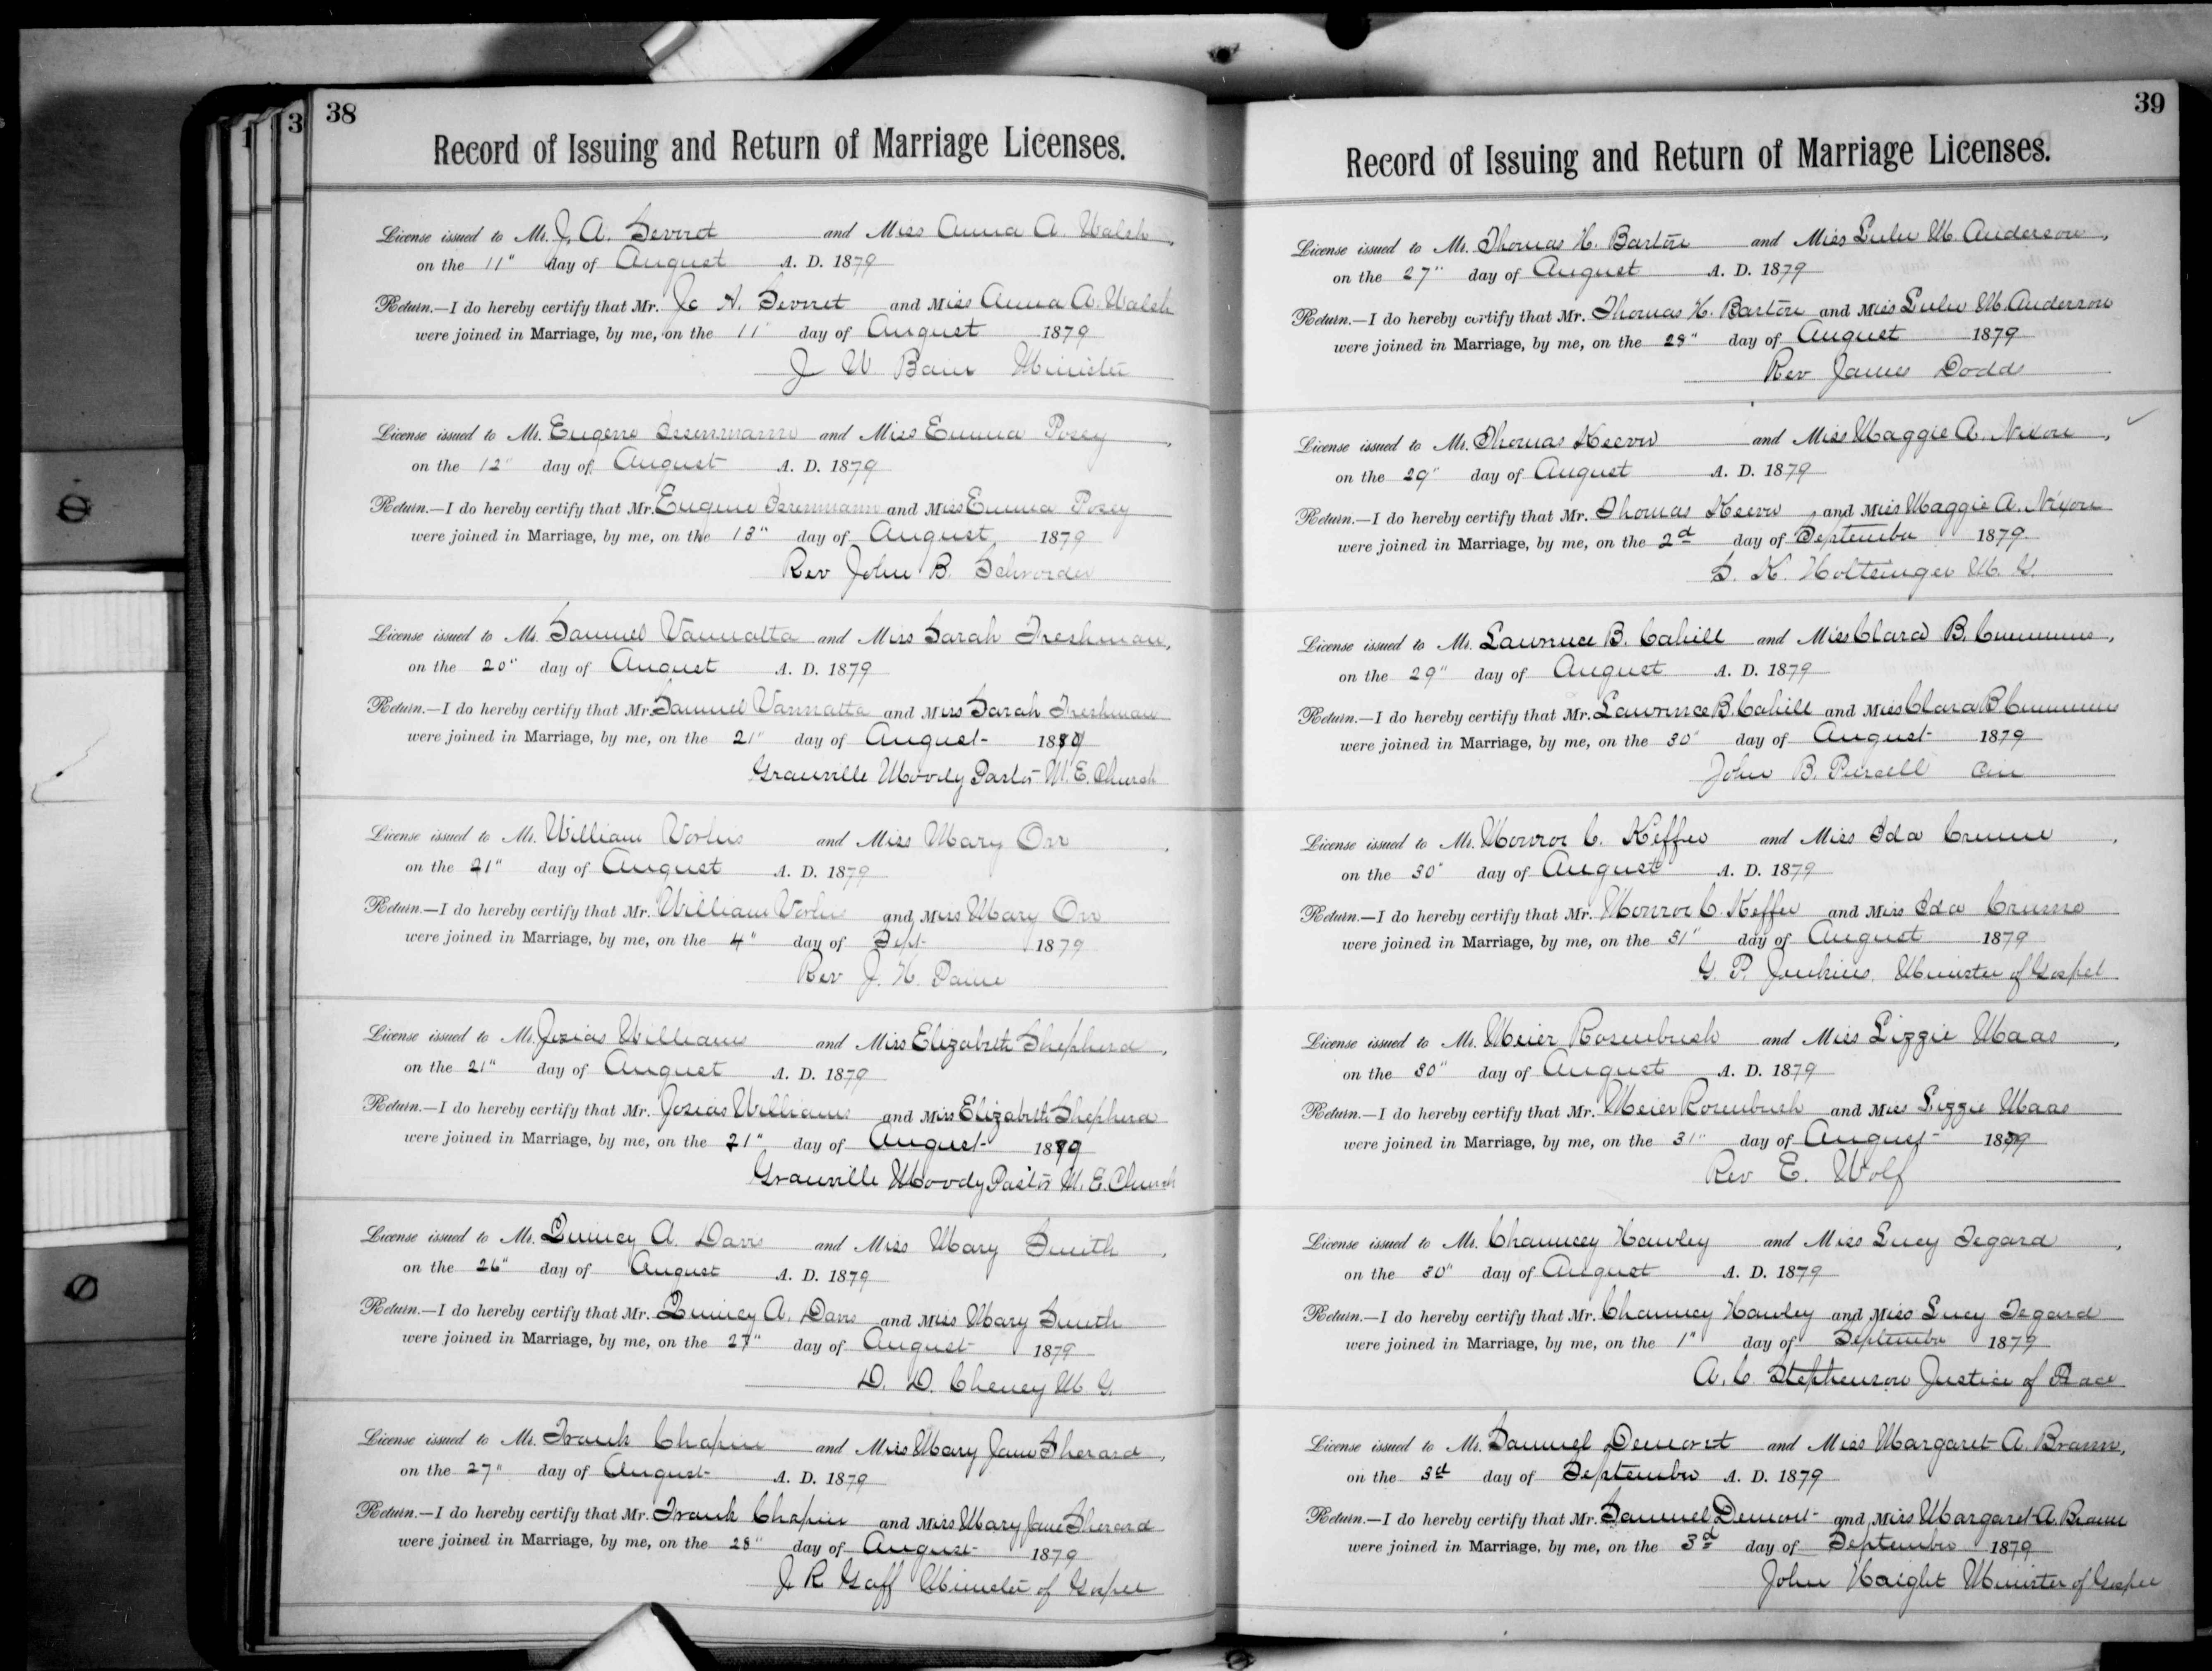 38
Record of Issuing and Return of Marriage Licenses.
License issued to Mr. J. A. and Miss Anna A. Walsh,
on the 11" day of August A. D. 1879
Return.—I do hereby certify that Mr. A. and Miss Anna A. Walsh
were joined in Marriage, by me, on the 11" day of August 1879
J W Minister
License issued to Mr. Eugene and Miss Emma Posey,
on the 12" day of August A. D. 1879
Return.—I do hereby certify that Mr. Eugene and Miss Emma Posey
were joined in Marriage, by me, on the 13" day of August 1879
Rev John B. Schroeder
License issued to Mr. Samuel Vannatta and Miss Sarah Freshman,
on the 20" day of August A. D. 1879
Return.—I do hereby certify that Mr. Samuel Vannatta and Miss Sarah Freshman
were joined in Marriage, by me, on the 21" day of August 1879
Granville Moody Pastor M. E. Church
License issued to Mr. William and Miss Mary Orr,
on the 21" day of August A. D. 1879
Return.—I do hereby certify that Mr. William and Miss Mary Orr
were joined in Marriage, by me, on the 4" day of Sept 1879
Rev J. H. Paine
License issued to Mr. Josias Williams and Miss Elizabeth Shepherd,
on the 21" day of August A. D. 1879
Return.—I do hereby certify that Mr. Josias Williams and Miss Elizabeth Shepherd
were joined in Marriage, by me, on the 21" day of August 1879
Granville Moody Pastor M. E. Church
License issued to Mr. Quincy A. Davis and Miss Mary Smith,
on the 26" day of August A. D. 1879
Return.—I do hereby certify that Mr. Quincy A. Davis and Miss Mary Smith
were joined in Marriage, by me, on the 27" day of August 1879
D. D. Cheney M G.
License issued to Mr. Frank Chapin and Miss Mary Jane Sherard,
on the 27" day of August A. D. 1879
Return.—I do hereby certify that Mr. Frank Chapin and Miss Mary Jane Sherard
were joined in Marriage, by me, on the 28" day of August 1879
J R Goff Minister of Gospel
39
Record of Issuing and Return of Marriage Licenses.
License issued to Mr. Thomas H. Barton and Miss Lulu M. Anderson,
on the 27" day of August A. D. 1879
Return.—I do hereby certify that Mr. Thomas H. Barton and Miss Lulu M. Anderson
were joined in Marriage, by me, on the 28" day of August 1879
Rev James Dodds
License issued to Mr. Thomas and Miss Maggie A. Nixon,
on the 29" day of August A. D. 1879
Return.—I do hereby certify that Mr. Thomas and Miss Maggie A. Nixon
were joined in Marriage, by me, on the 2d day of September 1879
S. K. Holtsinger M. G.
License issued to Mr. Lawrence B. Cahill and Miss Clara B. Cummins,
on the 29" day of August A. D. 1879
Return.—I do hereby certify that Mr. Lawrence B. Cahill and Miss Clara B Cummins
were joined in Marriage, by me, on the 30" day of August 1879
John B. Purcell Cin
License issued to Mr. Monroe C. Keffer and Miss Ida,
on the 30" day of August A. D. 1879
Return.—I do hereby certify that Mr. Monroe C. Keffer and Miss Ida
were joined in Marriage, by me, on the 31" day of August 1879
G. P. Jenkins, Minister of Gospel
License issued to Mr. Meier Rosenbush and Miss Lizzie Maas,
on the 30" day of August A. D. 1879
Return.—I do hereby certify that Mr. Meier Rosenbush and Miss Lizzie Maas
were joined in Marriage, by me, on the 31" day of August 1879
Rev E. Wolf
License issued to Mr. Chauncey Hawley and Miss Lucy Tegard,
on the 30" day of August A. D. 1879
Return.—I do hereby certify that Mr. Chauncey Hawley and Miss Lucy Tegard
were joined in Marriage, by me, on the 1" day of September 1879
A. C. Stephenson Justice of Peace
License issued to Mr. Samuel Demorst and Miss Margaret A. Brann,
on the 3d day of September A. D. 1879
Return.—I do hereby certify that Mr. Samuel and Miss Margaret A. Brann
were joined in Marriage, by me, on the 3d day of September 1879
John Haight Minister of Gospel